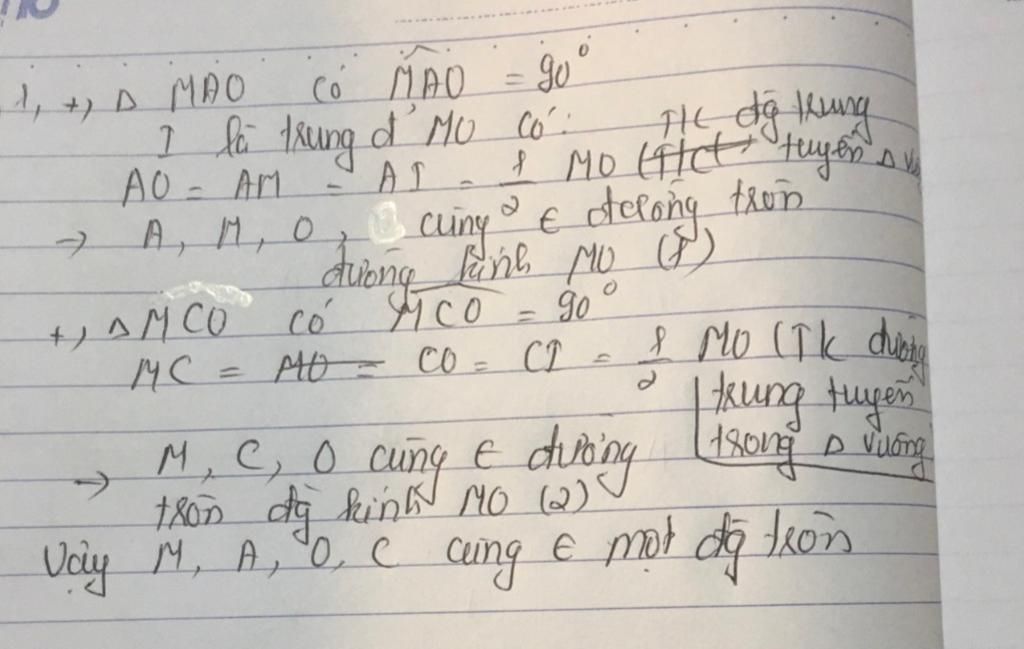 1, +, Δ MAO có MAO = 90°
I là trung đ' MO có:
AO = AM = AI = 1/2 MO (TTCT TK đg trung tuyến Δ vu
→ A, M, O, cùng ∈ đường tròn
đường kính MO (1)
+, Δ MCO có MCO = 90°
MC = MO = CO = CI = 1/2 MO (TK đường
trung tuyến
trong Δ vuông
→ M, C, O cùng ∈ đường
tròn đg kính MO (2)
Vậy M, A, O, C cùng ∈ một đg tròn